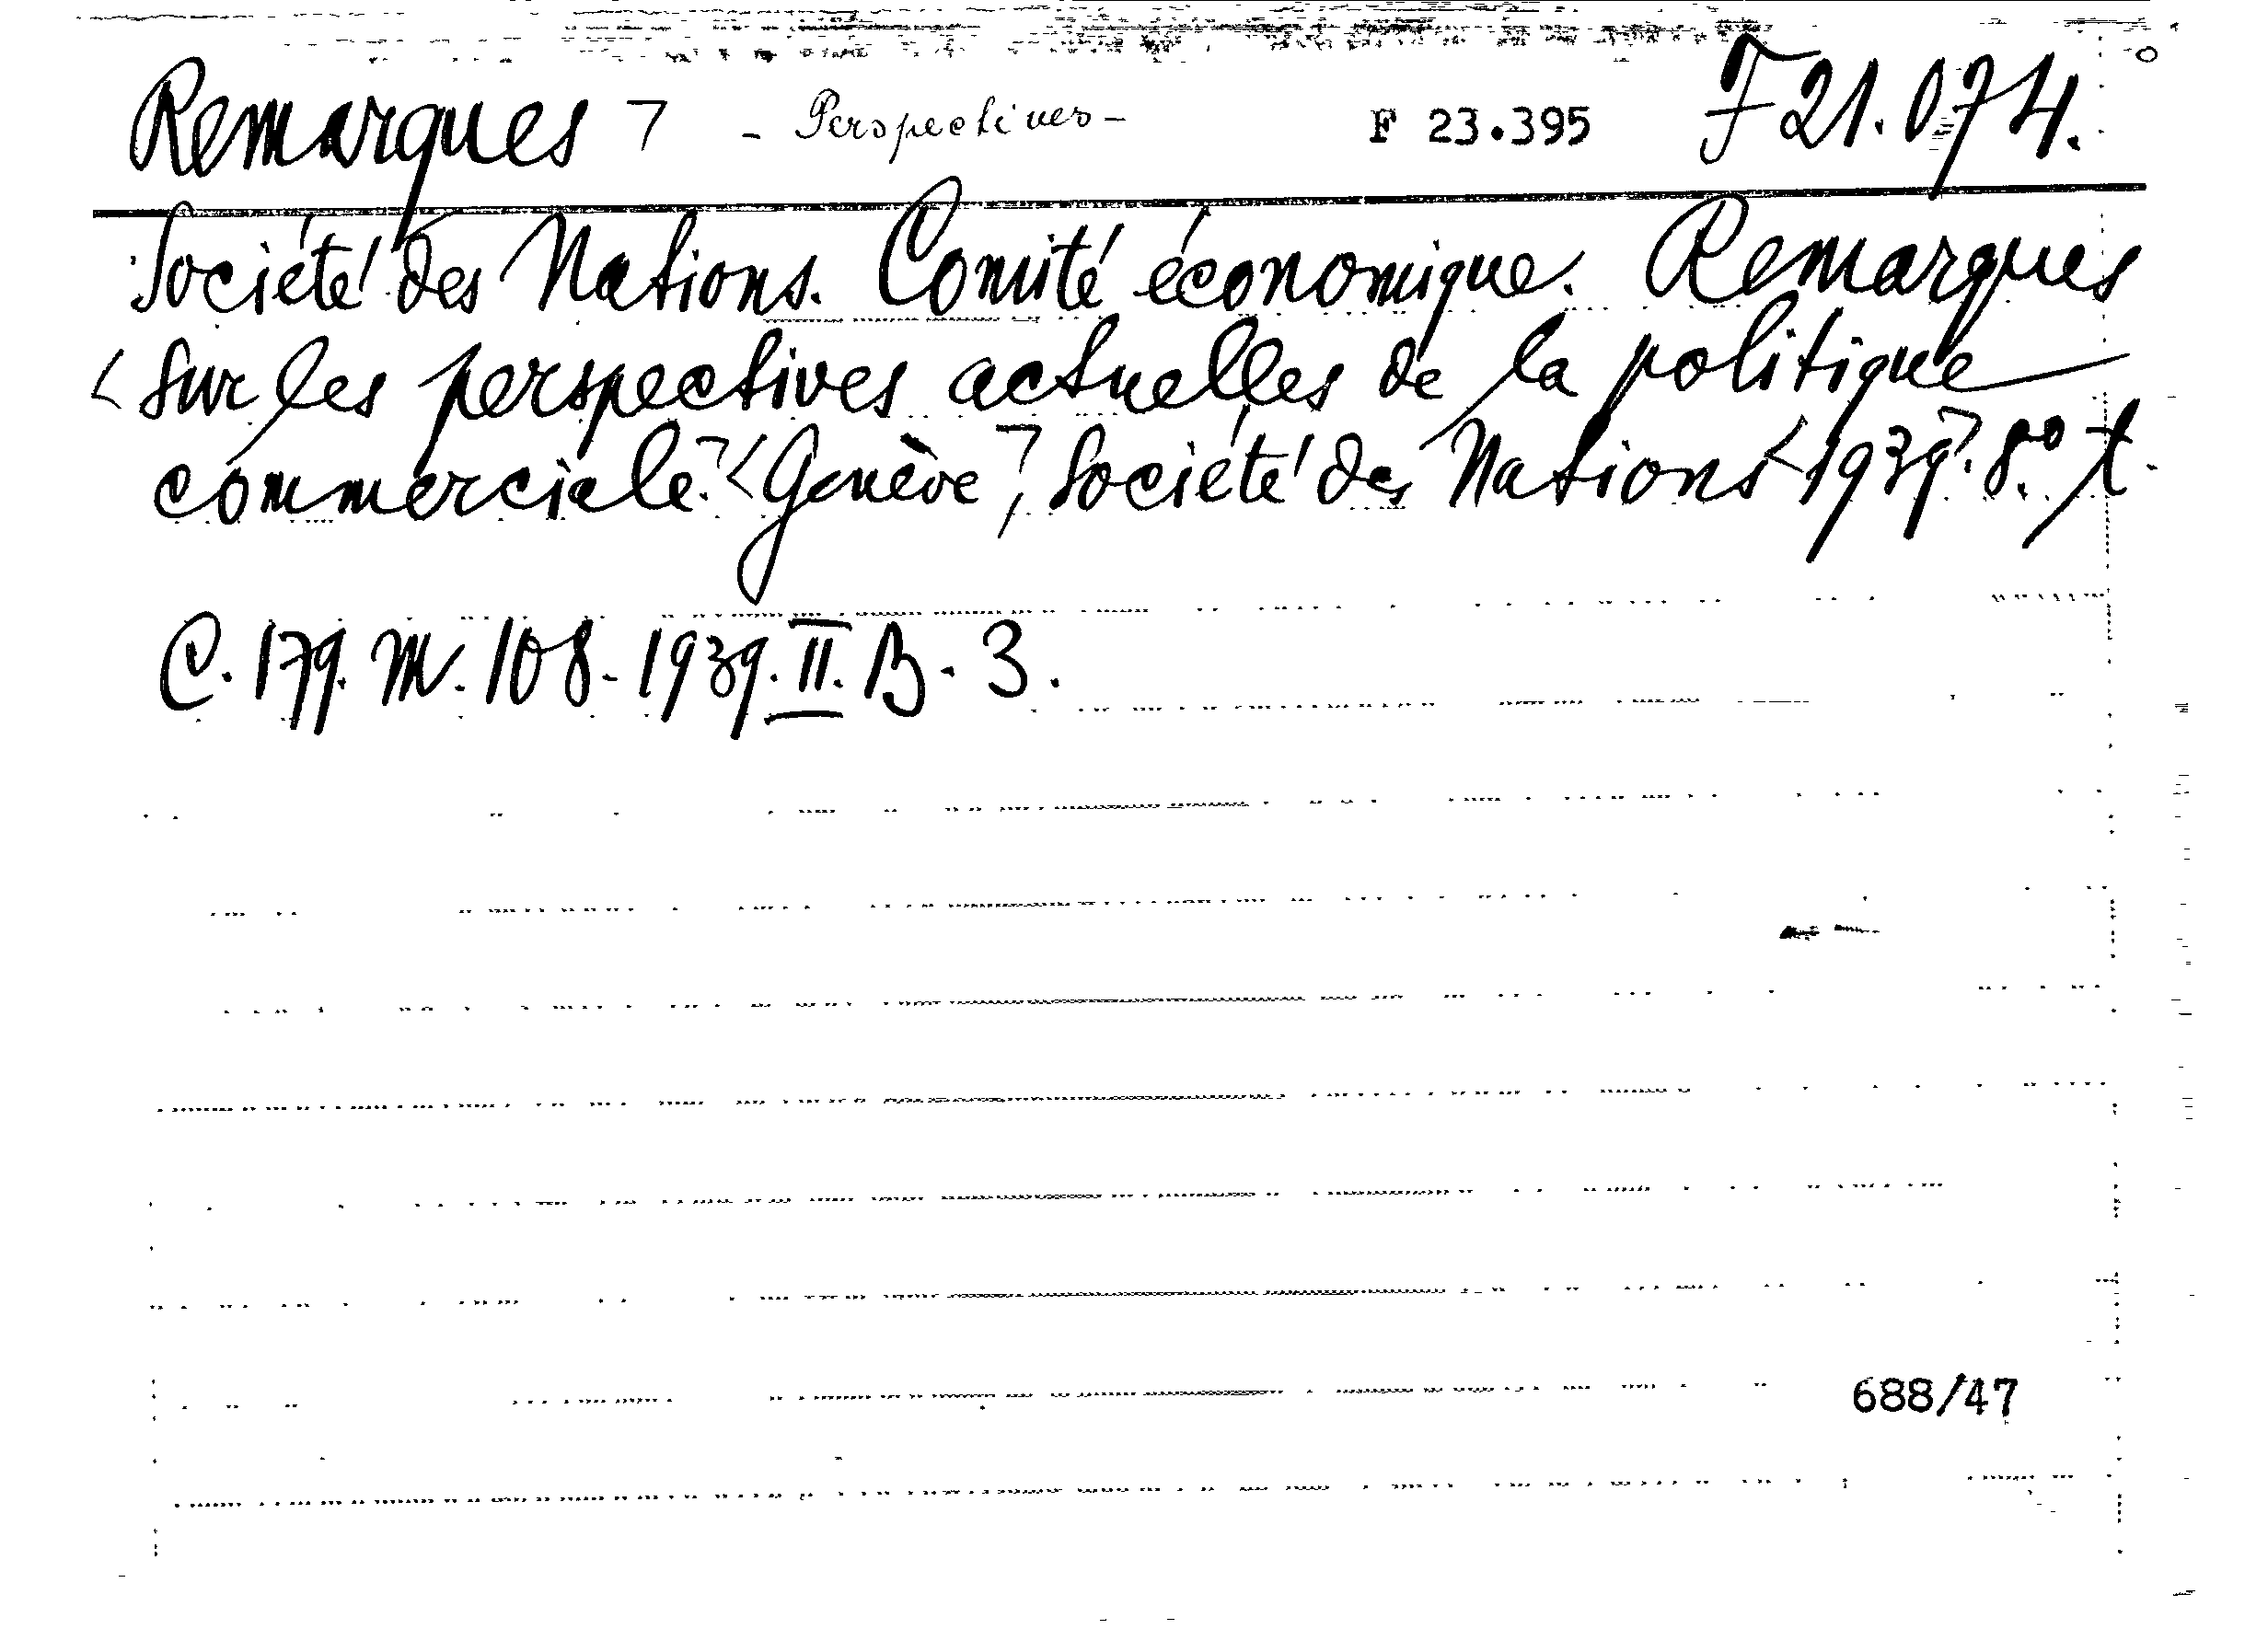 Remarques ¬ - Perspectives - F 23.395 F 21.074.
Société des Nations. Comité économique. Remarques
< sur les perspectives actuelles de la politique
commerciale.¬ < Genève ¬, Société des Nations < 1939 ¬. 8° t.
C. 179. M. 108. 1939. II. B. 3.
688/47